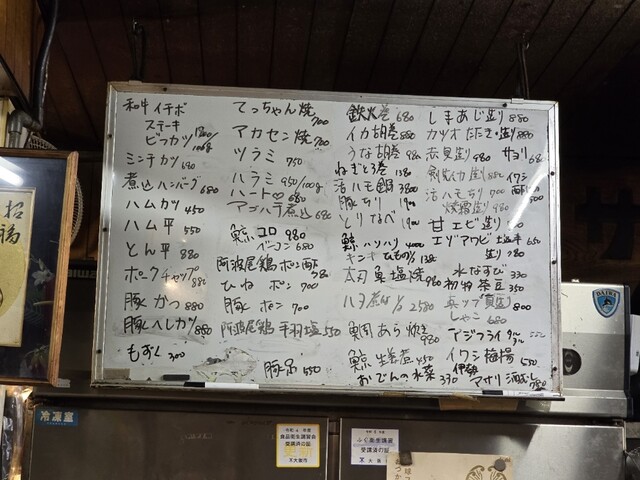 和牛イチボ
ステーキ
ビフカツ 100g
ミンチカツ 690
煮込ハンバーグ 680
ハムカツ 450
ハム平 550
とん平 880
ポークチャップ 880
豚かつ 880
豚ヘレカツ 880
もずく 300
てっちゃん焼 700
アカセン焼 700
ツラミ 750
ハラミ 950/100g
ハート 680
アゴハラ煮込 680
鯨コロ 980
ベーコン 680
阿波尾鶏 ポン酢 780
ひね ポン 700
豚 ポン 700
阿波尾鶏 手羽塩 550
豚足 550
鉄火巻 680
イカ胡巻 880
うな胡巻 980
ねぎとろ巻
活ハモ鍋 3800
豚ちり 1900
とりなべ 1900
鯨ハリハリ 4000
太刀魚塩焼 980
2580
鯛あら炊き 980
鯨 生姜煮 450
おでんの水菜 390
しまあじ造り 880
カツオたたき・造り 880
赤貝造り 980 サヨリ 680
イワシ
活ハモちり 700
焼霜造り 980
甘エビ造り
エゾアワビ 塩辛 650
造り 980
水なすび 330
枝豆 350
造り 800
しゃこ 680
アジフライ
イワシ梅揚 650
伊勢
アサリ酒むし 780
招福
冷凍室
DAIWA
令和・4・年度
食品衛生講習会
受講済の証
大阪市
ふぐ衛生講習
受講済の証
大阪